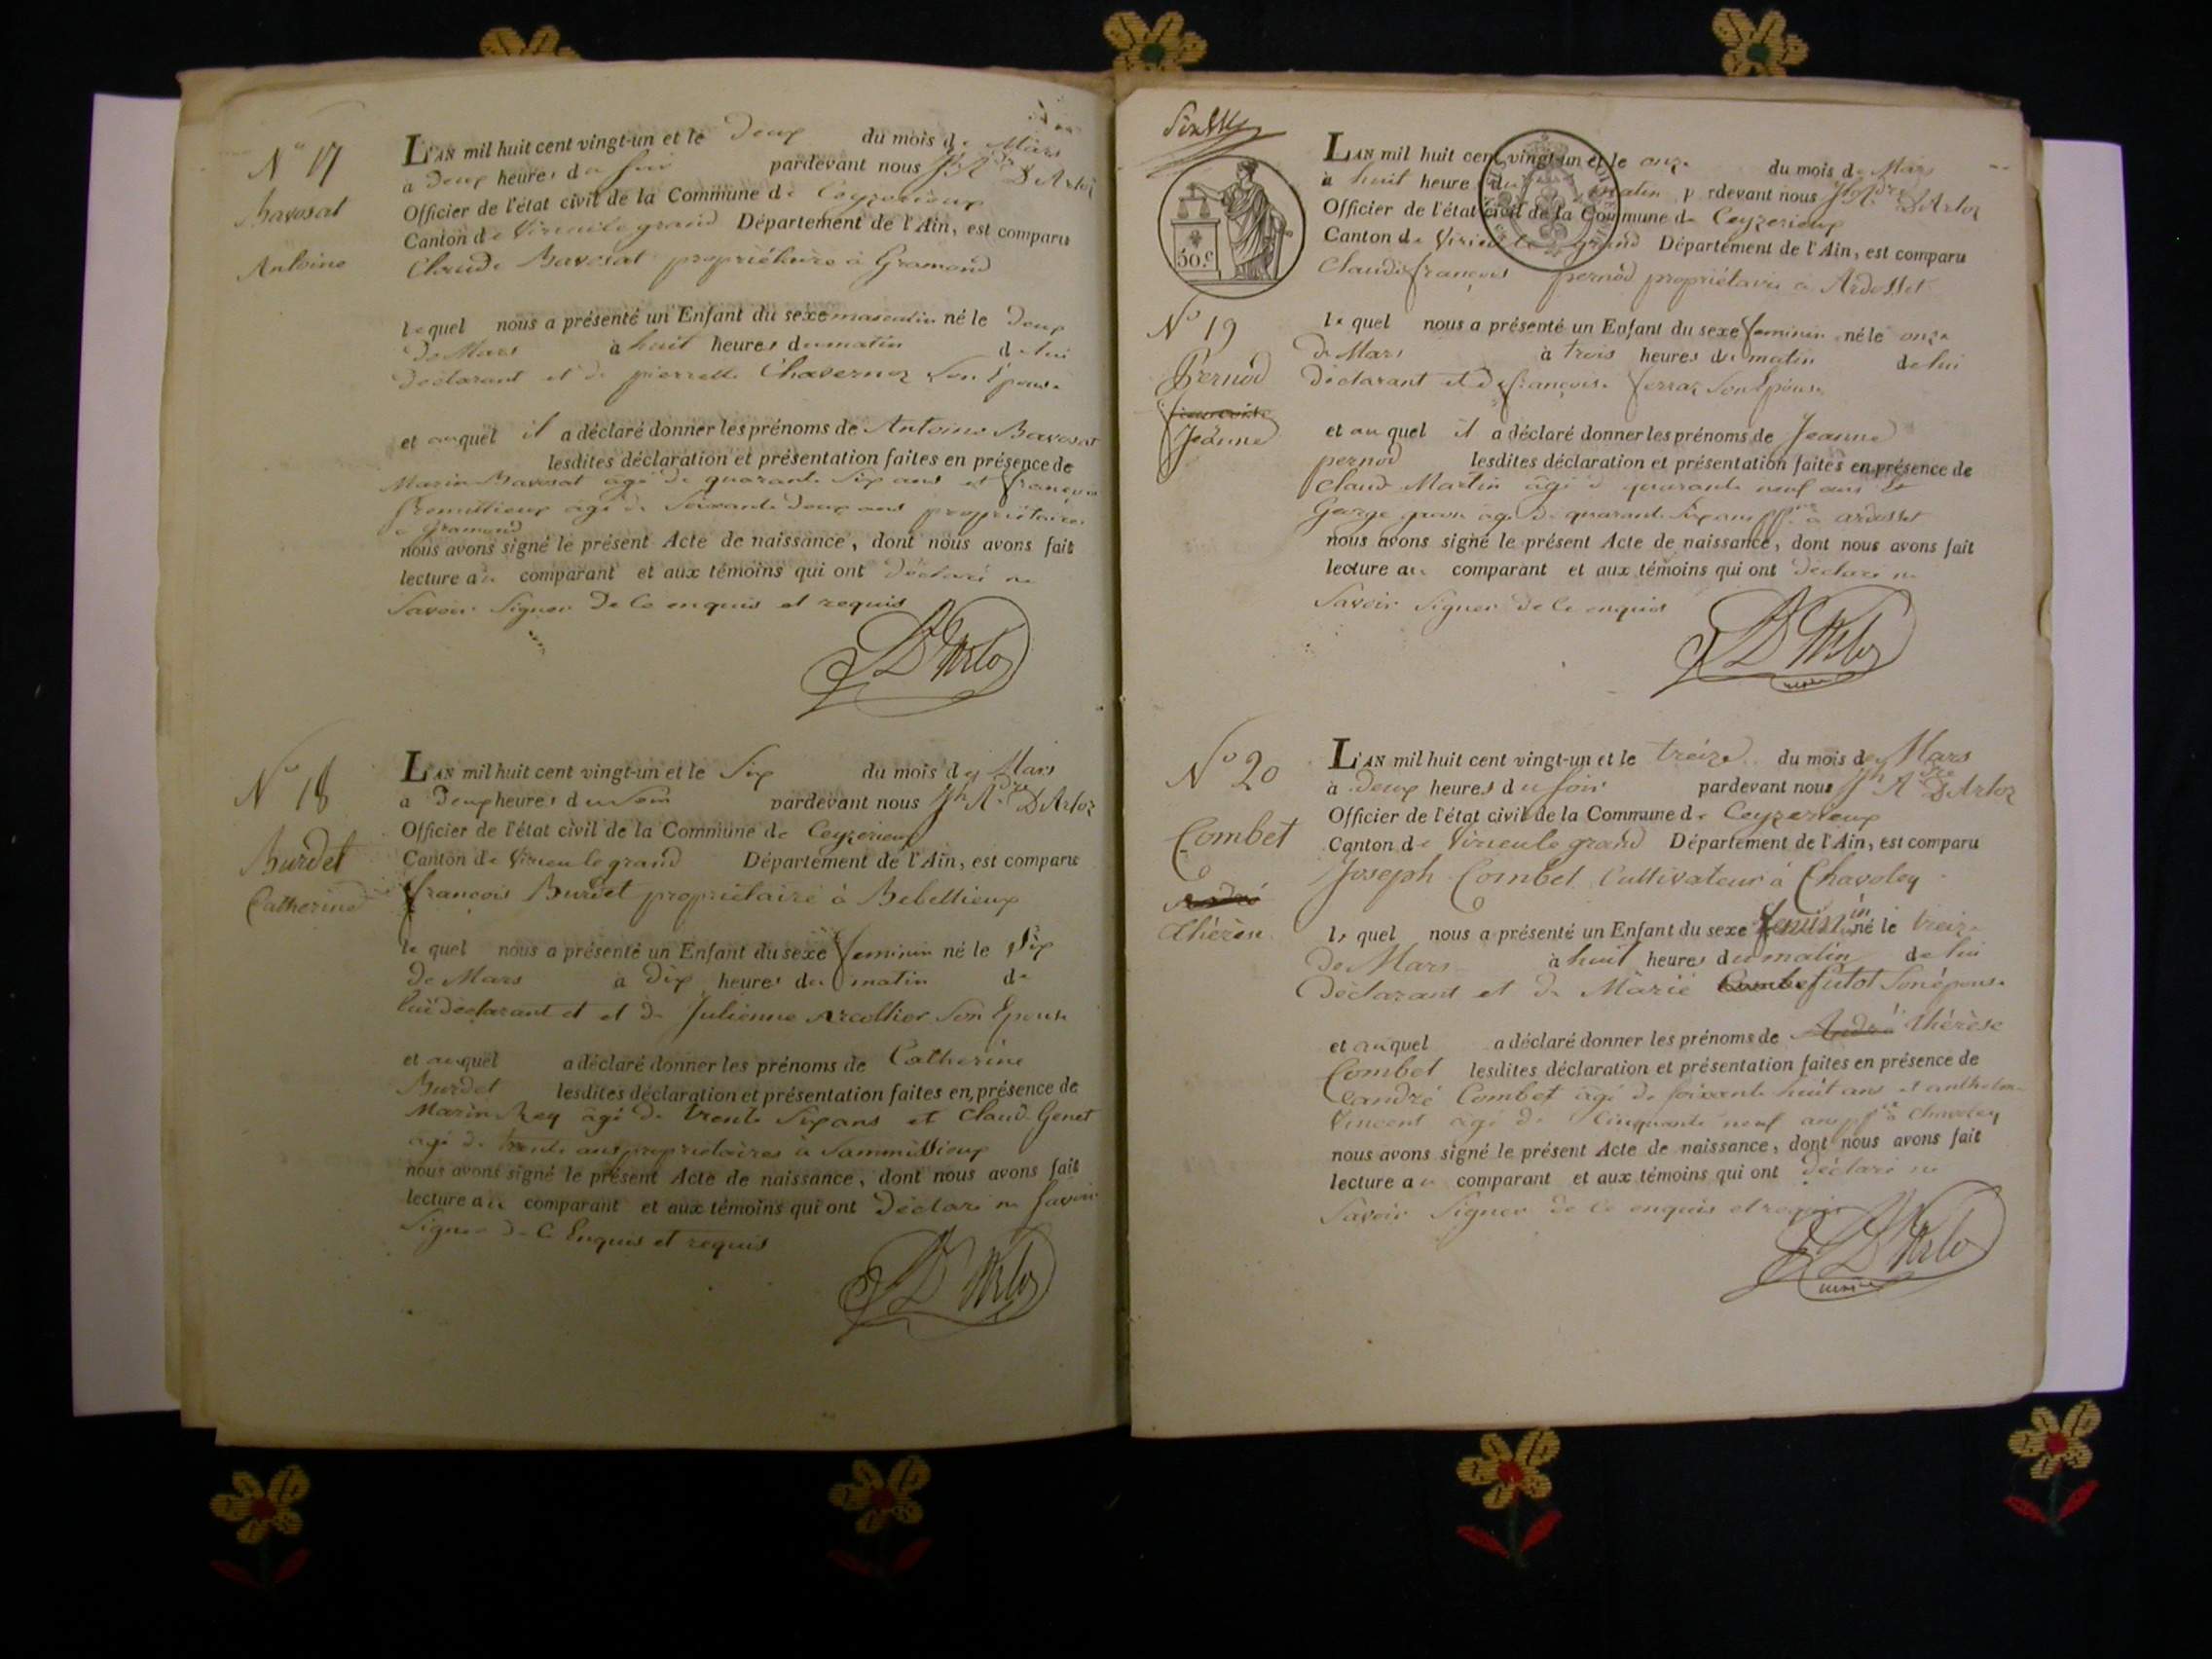 N° 17
Bavosat
Antoine
L'AN mil huit cent vingt-un et le Deux du mois de Mars
à Deux heures du soir pardevant nous Jh Adre D'Arloz
Officier de l'état civil de la Commune de Ceyzerieux
Canton de Virieu le grand Département de l'Ain, est comparu
Claude Bavosat propriétaire à Gramond
lequel nous a présenté un Enfant du sexe masculin né le Deux
De Mars à huit heures du matin de lui
Déclarant et de pierrette Chavernoz Son Epouse
et auquel il a déclaré donner les prénoms de Antoine Bavosat
lesdites déclaration et présentation faites en présence de
Marin Bavosat agé de quarante Six ans et françois
agé de Soixante Deux ans propriétaires
à Gramond
nous avons signé le présent Acte de naissance, dont nous avons fait
lecture au comparant et aux témoins qui ont Déclaré ne
Savoir Signer De Ce enquis et requis
D'Arloz
N° 18
Burdet
Catherine
L'AN mil huit cent vingt-un et le Six du mois de Mars
à Deux heures du Soir pardevant nous Jh Adre D'Arloz
Officier de l'état civil de la Commune de Ceyzerieux
Canton de Virieu le grand Département de l'Ain, est comparu
françois Burdet propriétaire à Bebellieux
le quel nous a présenté un Enfant du sexe feminin né le Six
De Mars à Dix heures du matin de
lui déclarant et et de Julienne Arcollier Son Epouse
et auquel a déclaré donner les prénoms de Catherine
Burdet lesdites déclaration et présentation faites en présence de
Marin Rey âgé de trente Six ans et Claude Genet
agé de trente ans propriétaires à Sammissieux
nous avons signé le présent Acte de naissance, dont nous avons fait
lecture au comparant et aux témoins qui ont Déclaré ne Savoir
Signer de Ce Enquis et requis
D'Arloz
50 C.
N° 19
Pernod
Jeanne
L'AN mil huit cent vingt-un et le onze du mois de Mars
à huit heures du matin pardevant nous Jh Adre D'Arloz
Officier de l'état civil de la Commune de Ceyzerieux
Canton de Virieu le grand Département de l'Ain, est comparu
Claude françois pernod propriétaire à Ardosset
le quel nous a présenté un Enfant du sexe feminin né le onze
De Mars à trois heures du matin de lui
Déclarant et de françoise ferraz Son Epouse
et au quel il a déclaré donner les prénoms de Jeanne
pernod lesdites déclaration et présentation faites en présence de
Claude Martin âgé de quarante neuf ans Et
George agé de quarante Six ans pp.res à ardosset
nous avons signé le présent Acte de naissance, dont nous avons fait
lecture au comparant et aux témoins qui ont Déclaré ne
Savoir Signer de Ce enquis
D'Arloz
N° 20
Combet
André
thérèse
L'AN mil huit cent vingt-un et le treize du mois de Mars
à Deux heures du soir pardevant nous Jh Adre D'Arloz
Officier de l'état civil de la Commune de Ceyzerieux
Canton de Virieu le grand Département de l'Ain, est comparu
Joseph Combet Cultivateur à Chavoley
le quel nous a présenté un Enfant du sexe feminin né le treize
De Mars à huit heures du matin de lui
Déclarant et de Marie Combe futot Son épouse
et auquel a déclaré donner les prénoms de André thérèse
Combet lesdites déclaration et présentation faites en présence de
andré Combet agé de soixante huit ans et anthelme
Vincent agé de Cinquante neuf ans pp.res à Chavoley
nous avons signé le présent Acte de naissance, dont nous avons fait
lecture au comparant et aux témoins qui ont Déclaré ne
Savoir Signer de Ce enquis et requis
D'Arloz
maire